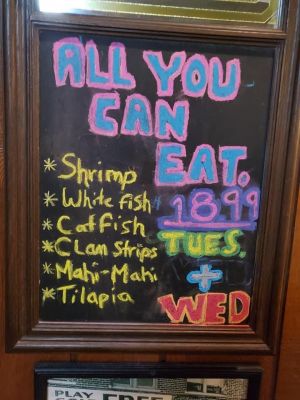 ALL YOU
CAN
EAT.
18.99
TUES.
+
WED
* Shrimp
* White fish
* Catfish
* Clam Strips
* Mahi-Mahi
* Tilapia
PLAY
FREE